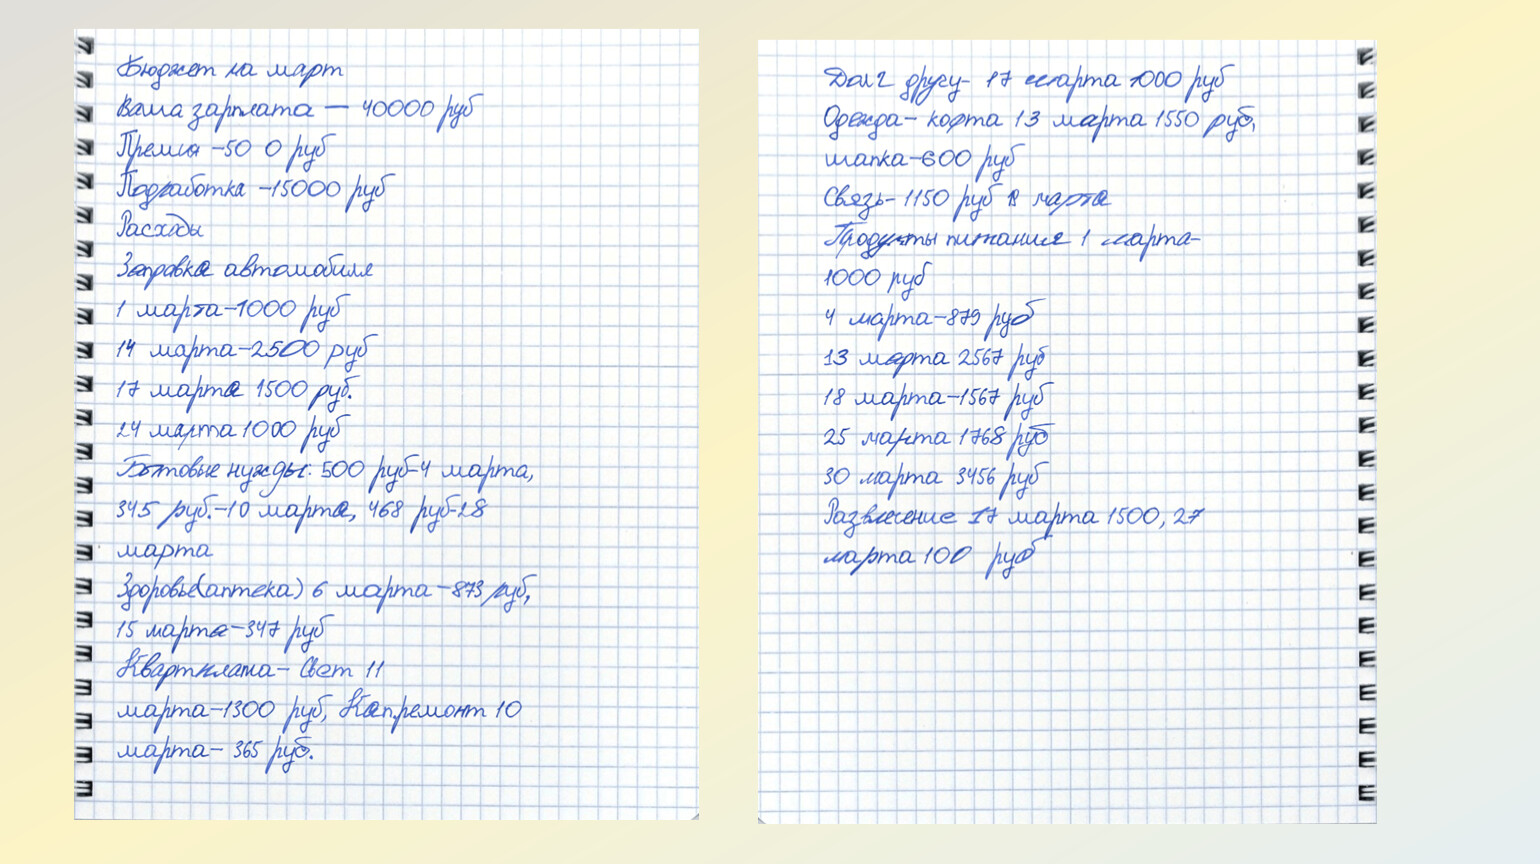 Бюджет на март
Ваша зарплата — 40000 руб
Премия -50 0 руб
Подработка -15000 руб
Расходы
Заправка автомобиля
1 марта-1000 руб
14 марта-2500 руб
17 марта 1500 руб.
24 марта 1000 руб
Бытовые нужды: 500 руб-4 марта,
345 руб.-10 марта, 468 руб-28
марта
Здоровье(аптека) 6 марта -873 руб,
15 марта-347 руб
Квартплата- Свет 11
марта-1300 руб, Кап.ремонт 10
марта- 365 руб.
Долг другу- 17 марта 1000 руб
Одежда- кофта 13 марта 1550 руб,
шапка-600 руб
Связь- 1150 руб 8 марта
Продукты питания 1 марта-
1000 руб
4 марта-879 руб
13 марта 2567 руб
18 марта-1567 руб
25 марта 1768 руб
30 марта 3456 руб
Развлечение 17 марта 1500, 27
марта 100 руб